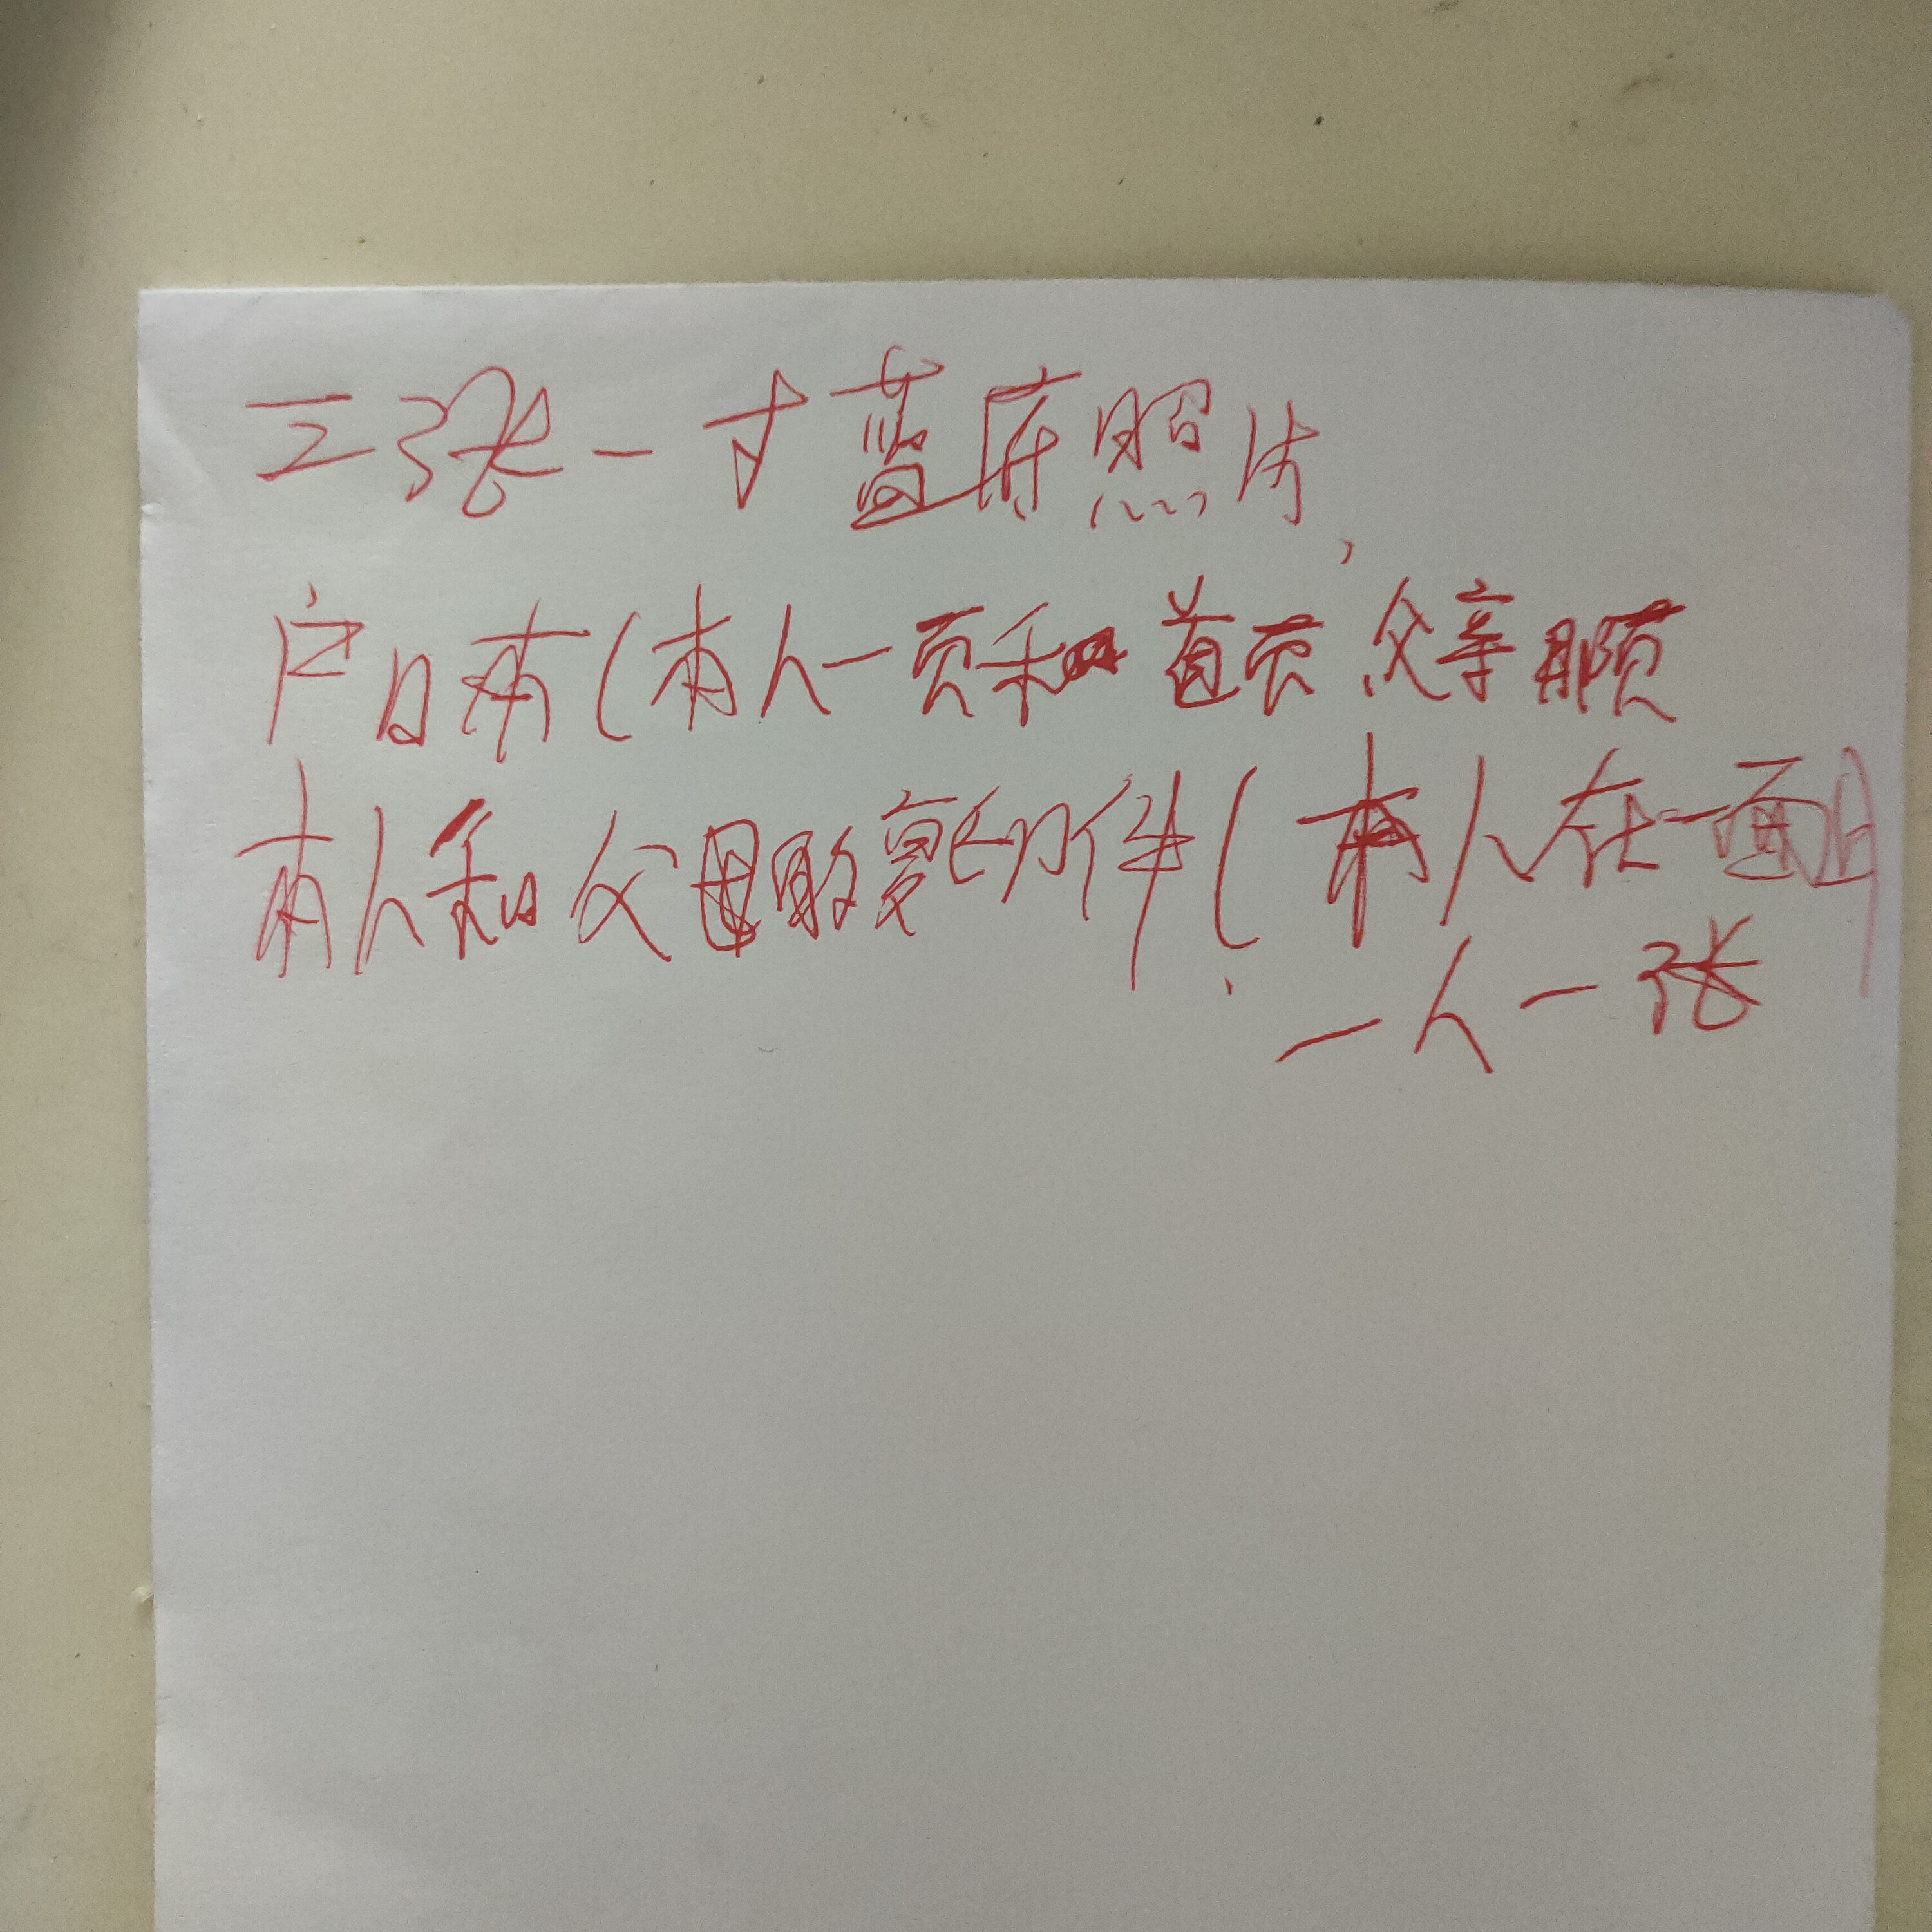 三张一寸蓝底照片,
户口本(本人一页和首页 父亲那页
本人和父母的复印件(本人在一面
一人一张